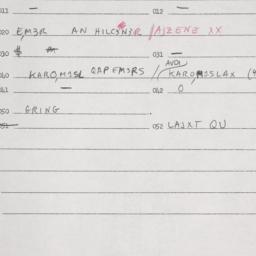 011 — 012 —
020 E,M3R AN HILC3N3R /AJZENE XX
030 031 —
040 KARO,M1SL QAP EM3RS / AVOI KARO,M1SLAX (4
041 — 042 O
050 GRING
051 052 LAJXT QU